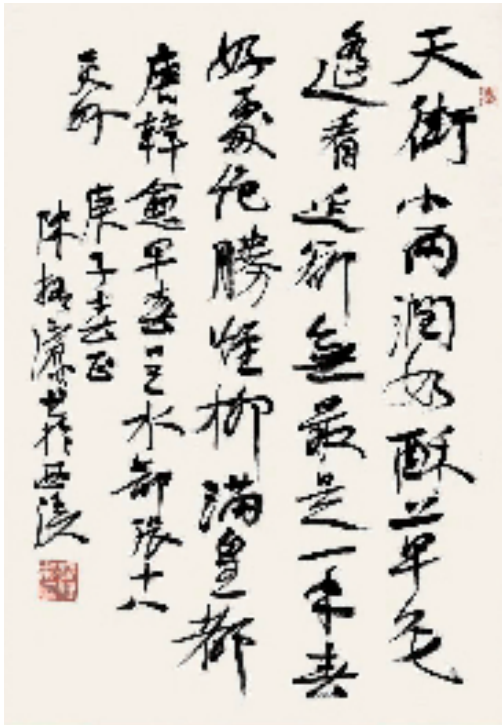 天街小雨潤如酥草色
遙看近卻無最是一年春
好處絕勝煙柳滿皇都
唐韓愈早春呈水部張十八
員外 庚子
陳振濂書於西溪